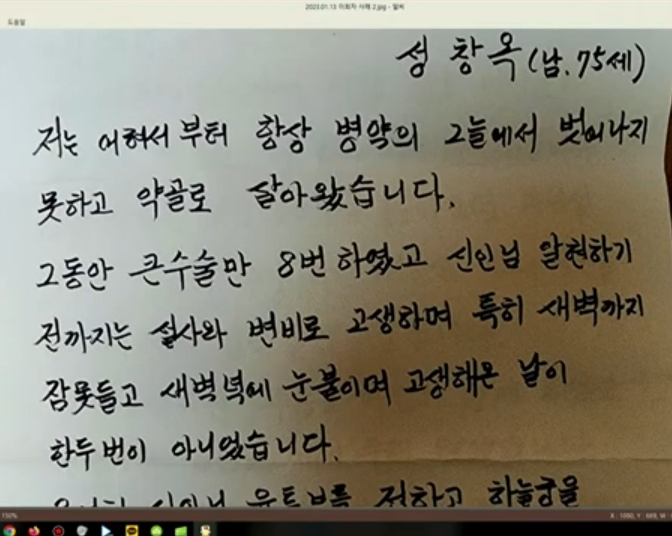 2023.01.13 이회자 사례 2.jpg - 알씨
도움말
성 창옥 (남. 75세)
저는 어려서 부터 항상 병약의 그늘에서 벗어나지
못하고 약골로 살아왔습니다.
그동안 큰수술만 8번 하였고 신인님 알현하기
전까지는 설사와 변비로 고생하며 특히 새벽까지
잠못들고 새벽녘에 눈붙이며 고생해온 날이
한두번이 아니었습니다.
유튜브를 접하고 하늘궁을
150%